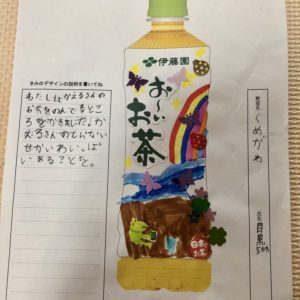 きみのデザインの説明を書いてね
わたしはかえるさんの
お茶をのんでるとこ
ろをかきました。か
えるさんのでんない
せかいわいっぱ
いあることを。
伊藤園
お〜いお茶
日本の
お茶
教室名
くめがわ
氏名